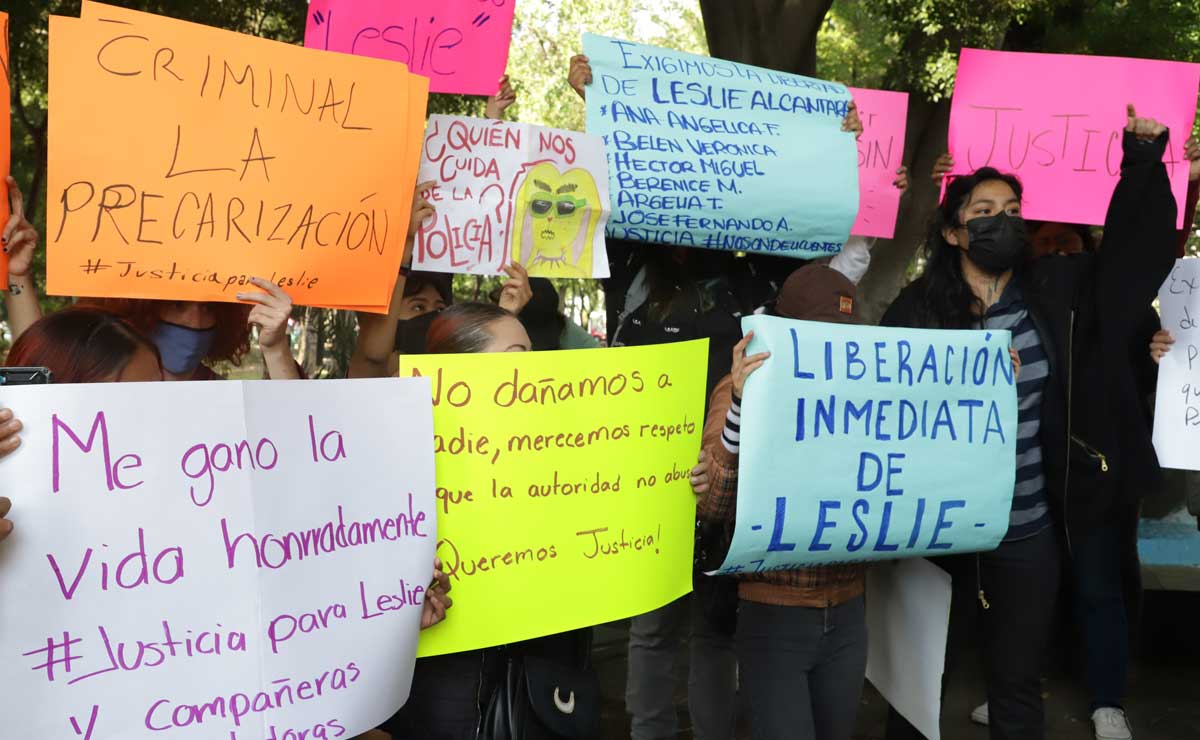 CRIMINAL
LA
PRECARIZACIÓN
#Justicia para Leslie
"Leslie"
¿QUIÉN NOS
CUIDA
DE LA
POLICIA?
EXIGIMOS LA LIBERTAD
DE LESLIE ALCANTARA
*ANA ANGELICA F.
*BELEN VERONICA
*HECTOR MIGUEL
BERENICE M.
ARGELIA T.
JOSE FERNANDO A.
JUSTICIA #NOSONDELICUENTES
JUSTICIA
Me gano la
vida honrradamente
#Justicia para Leslie
y compañeras
No dañamos a
adie, merecemos respeto
que la autoridad no abuse
Queremos Justicia!
LIBERACIÓN
INMEDIATA
DE
-LESLIE-